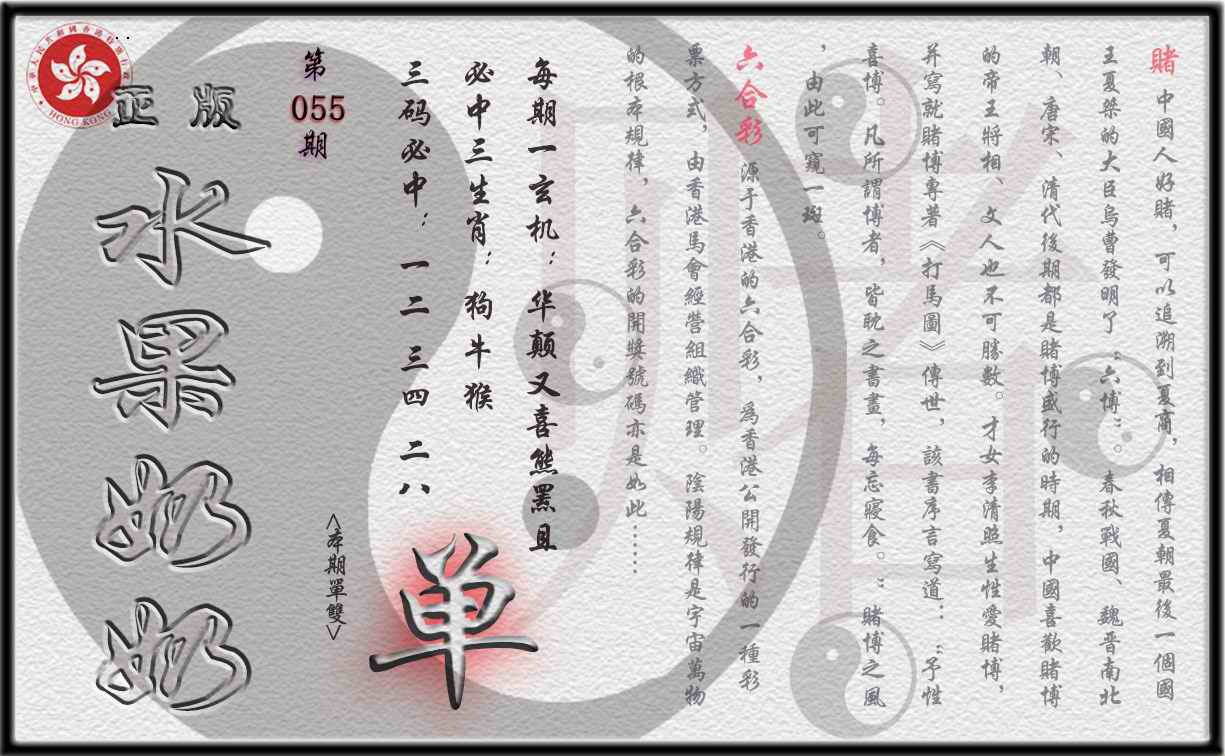 賭 中國人好賭，可以追溯到夏商，相傳夏朝最後一個國
王夏桀的大臣烏曹發明了“六博”。春秋戰國、魏晋南北
朝、唐宋、清代後期都是賭博盛行的時期，中國喜歡賭博
的帝王將相、文人也不可勝數。才女李清照生性愛賭博，
并寫就賭博專著《打馬圖》傳世，該書序言寫道：“予性
喜博。凡所謂博者，皆耽之書晝，每忘寢食。”賭博之風
，由此可窺一斑。
六合彩 源于香港的六合彩，爲香港公開發行的一種彩
票方式，由香港馬會經營組織管理。陰陽規律是宇宙萬物
的根本規律，六合彩的開獎號碼亦是如此……
每期一玄机：华颠又喜熊罴且
必中三生肖：狗牛猴
三码必中：一二 三四 二八
单
<本期單雙>
第
055
期
正版
水果奶奶
中華人民共和國香港特別行政區
HONG KONG
賭